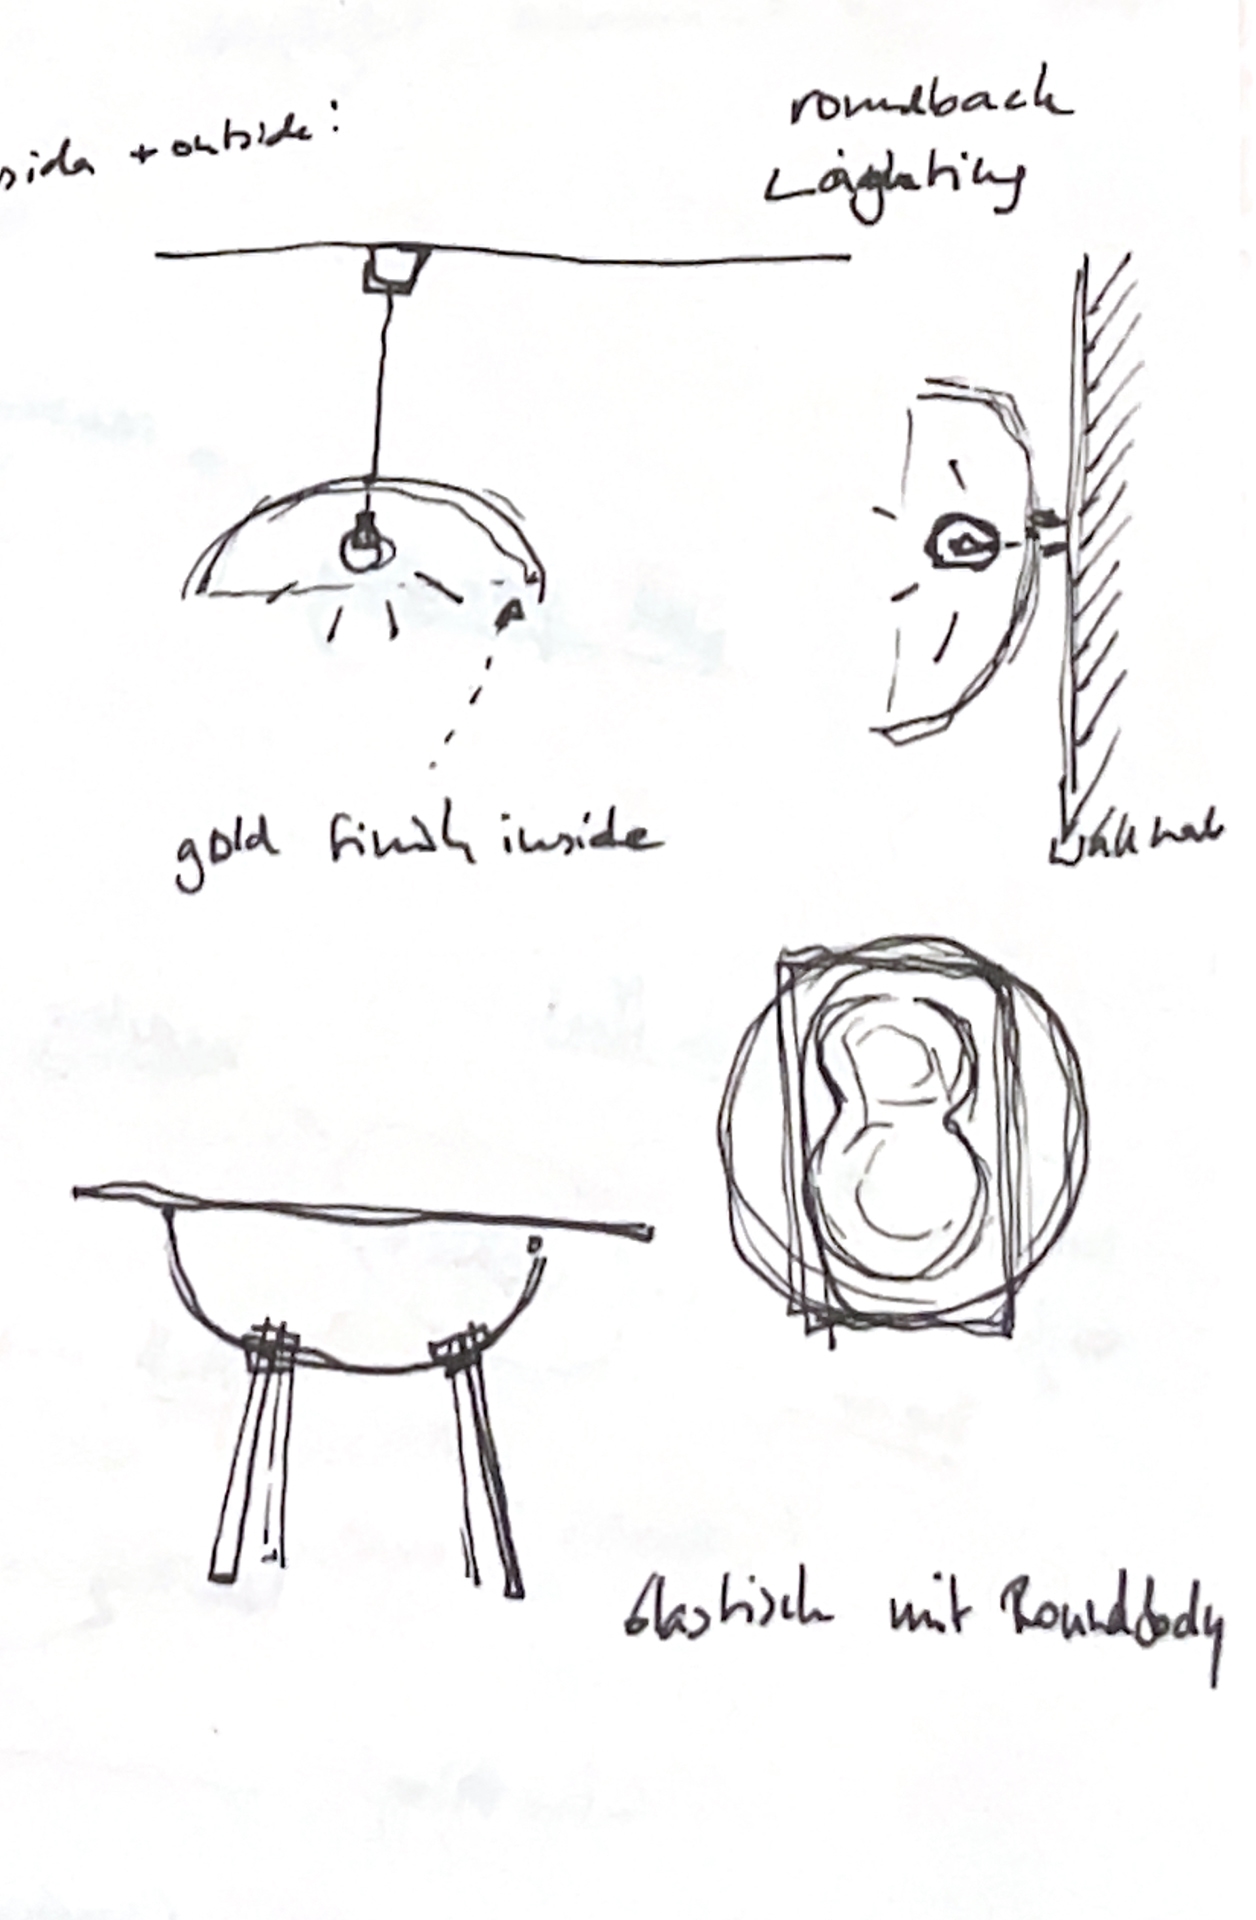 + outside:
roundback
Lighting
gold finish inside
Glastisch mit Roundbody